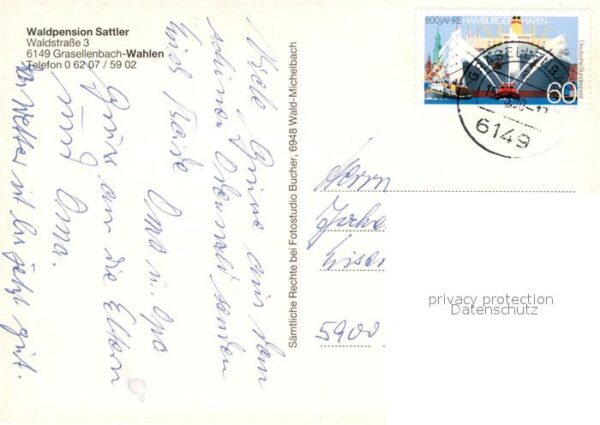 Waldpension Sattler
Waldstraße 3
6149 Grasellenbach-Wahlen
Telefon 0 62 07 / 59 02
Viele Grüße aus dem
schönen Odenwald senden
Euch beide
Oma u. Opa
Gruß an die Eltern
Oma.
Wetter ist bis jetzt gut.
Sämtliche Rechte bei Fotostudio Bucher, 6948 Wald-Michelbach
800 JAHRE HAMBURGER HAFEN
Deutsche Bundespost
60
6149
Herrn
5900
privacy protection
Datenschutz